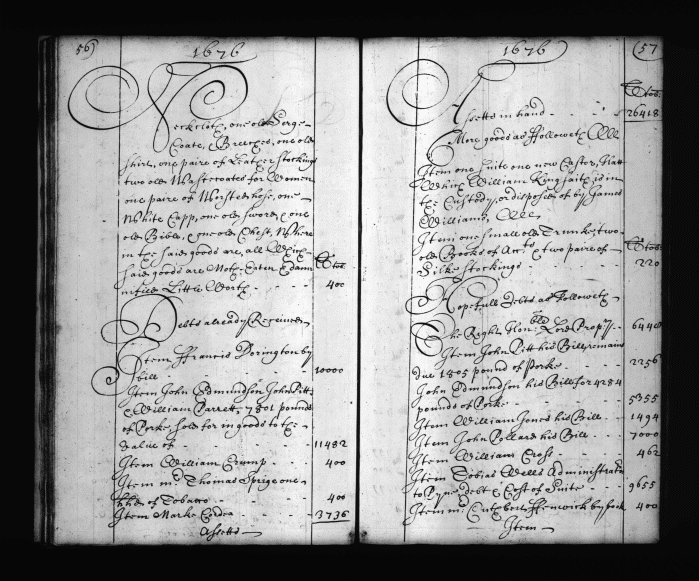 56)
1676
Neckcloth, one old Serge
Coate, Breeches, one old
shirt, one paire of Leather Stockings
two old Wastcoates for Women
one paire of Worsted hose, one
White Capp, one old sword, one
old Bible, & one old Chest, Where
in the said goods are, all Which
said goods are Moth Eaten & dam
nified Little Worth
lb tob
400
Debts already Received
Item Ffrancis Dorington by
bill 10000
Item John Edmundson John Pitt
& William Parrott 7801 pounds
of Porke, sold for in goods to the
value of 11482
Item William Crump 400
Item mr Thomas Sprigg one
hhd of Tobacco 400
Item Marke 3736
Assetts
1676
(57
lb tob
Assetts in hand 26418
More goods as Ffolloweth
Item one suite one new Castor Hatt
Which William King saith is in
the Custody, or disposed of by James
Williams,
Item one small old Trunke, two
old Books of Acctts & two paire of
Silke Stockings
lb tob
220
Hopefull Debts as Followeth
The Right Honble Lord Propry 6448
Item John Pitt his Bill, remains
due 1805 pound of Porke 2256
John Edmundson his Bill for 4284
pounds of Porke 5355
Item William Jones his Bill 1494
Item John Pollard his Bill 7000
Item William Cross 462
Item Tobias Wells Administrator
to Pyne debt & Cost of Suite 9655
Item mr Cuthbert 400
Item